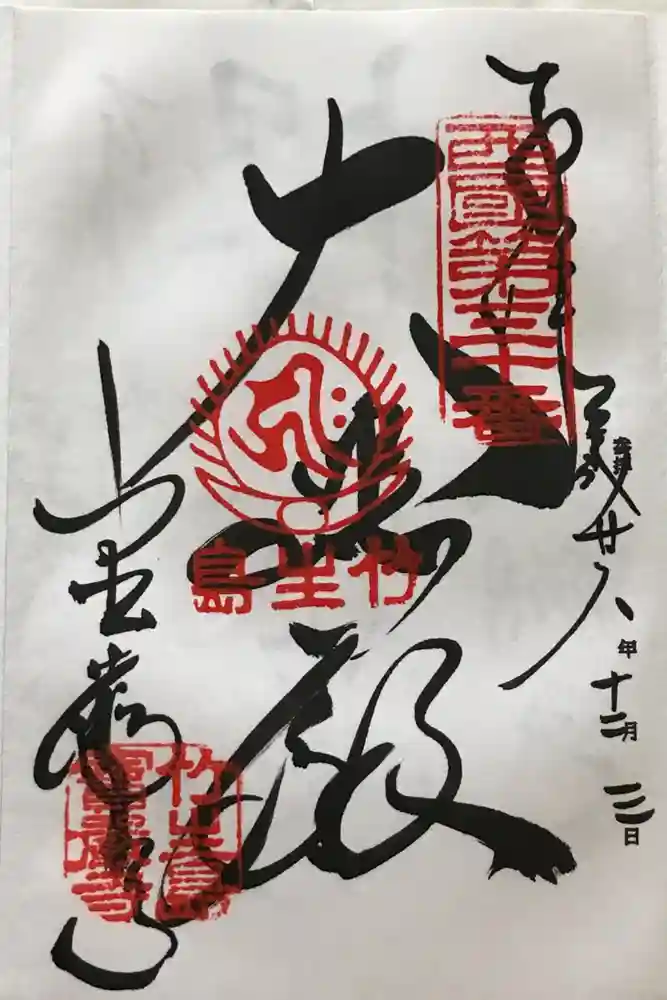 奉拝
平成廿八年十二月三日
西國第三十番
大悲殿
竹生島
宝厳寺
竹生島寶厳寺